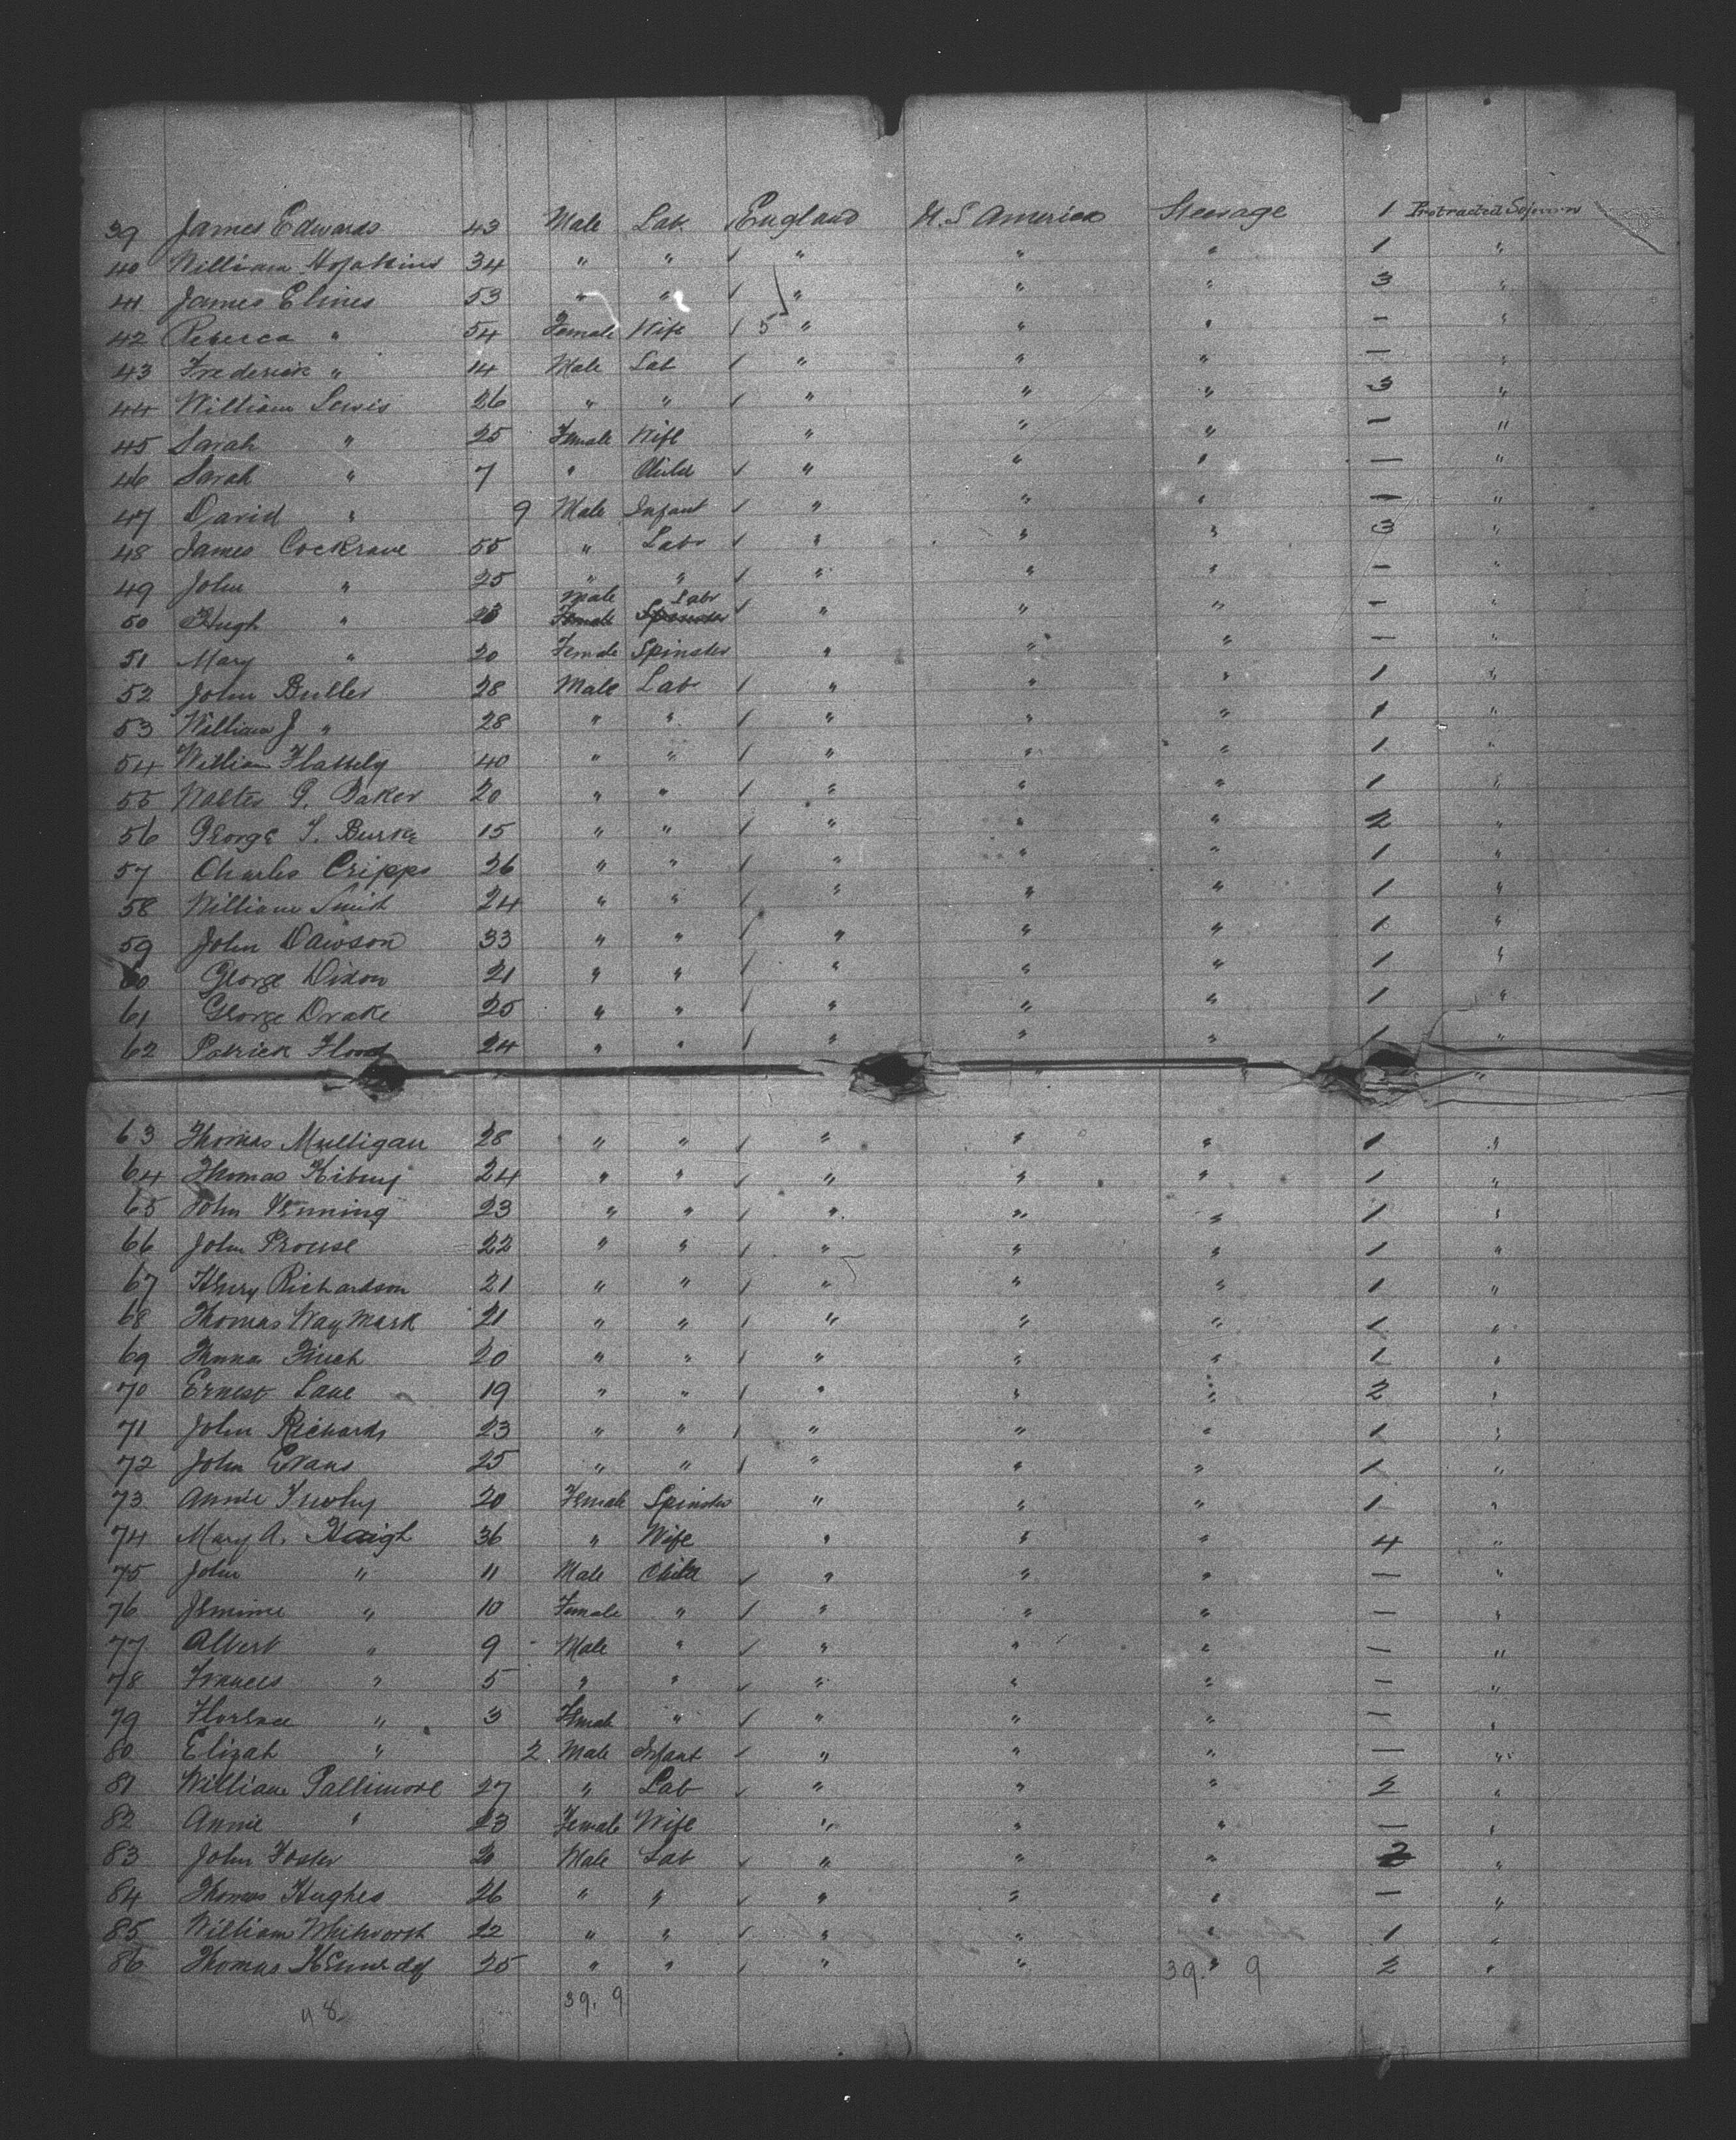 39 James Edwards 43 Male Lab England U.S America Steerage 1 Protracted Sojourn
40 William Hopkins 34 " " " " " 1 "
41 James Elines 53 " " " " " 3 "
42 Rebecca " 54 Female Wife 5 " " " — "
43 Frederick " 14 Male Lab " " " — "
44 William Lewis 26 " " " " " 3 "
45 Sarah " 25 Female Wife " " " — "
46 Sarah " 7 " Child " " " — "
47 David " 9 Male Infant " " " — "
48 James Cockrane 55 " Labr " " " 3 "
49 John " 25 " " " " " — "
50 Hugh " 23 Male Labr " " " — "
51 Mary " 20 Female Spinster " " " — "
52 John Butler 28 Male Lab " " " 1 "
53 William J " 28 " " " " " 1 "
54 William Flattely 40 " " " " " 1 "
55 Walter G. Baker 20 " " " " " 1 "
56 George T. Burke 15 " " " " " 2 "
57 Charles Cripps 26 " " " " " 1 "
58 William Smith 24 " " " " " 1 "
59 John Dawson 33 " " " " " 1 "
60 George Dixon 21 " " " " " 1 "
61 George Drake 25 " " " " " 1 "
62 Patrick Flood 24 " " " " " 1 "
63 Thomas Mulligan 28 " " " " " 1 "
64 Thomas 24 " " " " " 1 "
65 John Venning 23 " " " " " 1 "
66 John Prouse 22 " " " " " 1 "
67 Henry Richardson 21 " " " " " 1 "
68 Thomas Waymark 21 " " " " " 1 "
69 Finch 20 " " " " " 1 "
70 Ernest Lane 19 " " " " " 2 "
71 John Richards 23 " " " " " 1 "
72 John Evans 25 " " " " " 1 "
73 Annie 20 Female Spinster " " " 1 "
74 Mary A. Haigh 36 " Wife " " " 4 "
75 John " 11 Male Child " " " — "
76 Jemime " 10 Female " " " " — "
77 Albert " 9 Male " " " " — "
78 Frances " 5 " " " " " — "
79 Florence " 3 Female " " " " — "
80 Elizah " 2 Male Infant " " " — "
81 William Pallimore 27 " Lab " " " 2 "
82 Annie " 23 Female Wife " " " — "
83 John Foster Male Lab " " " 2 "
84 Thomas Hughes 26 " " " " " — "
85 William Whitworth 22 " " " " " 1 "
86 Thomas Kennedy 25 " " " " " 2 "
39. 9
39. 9
48